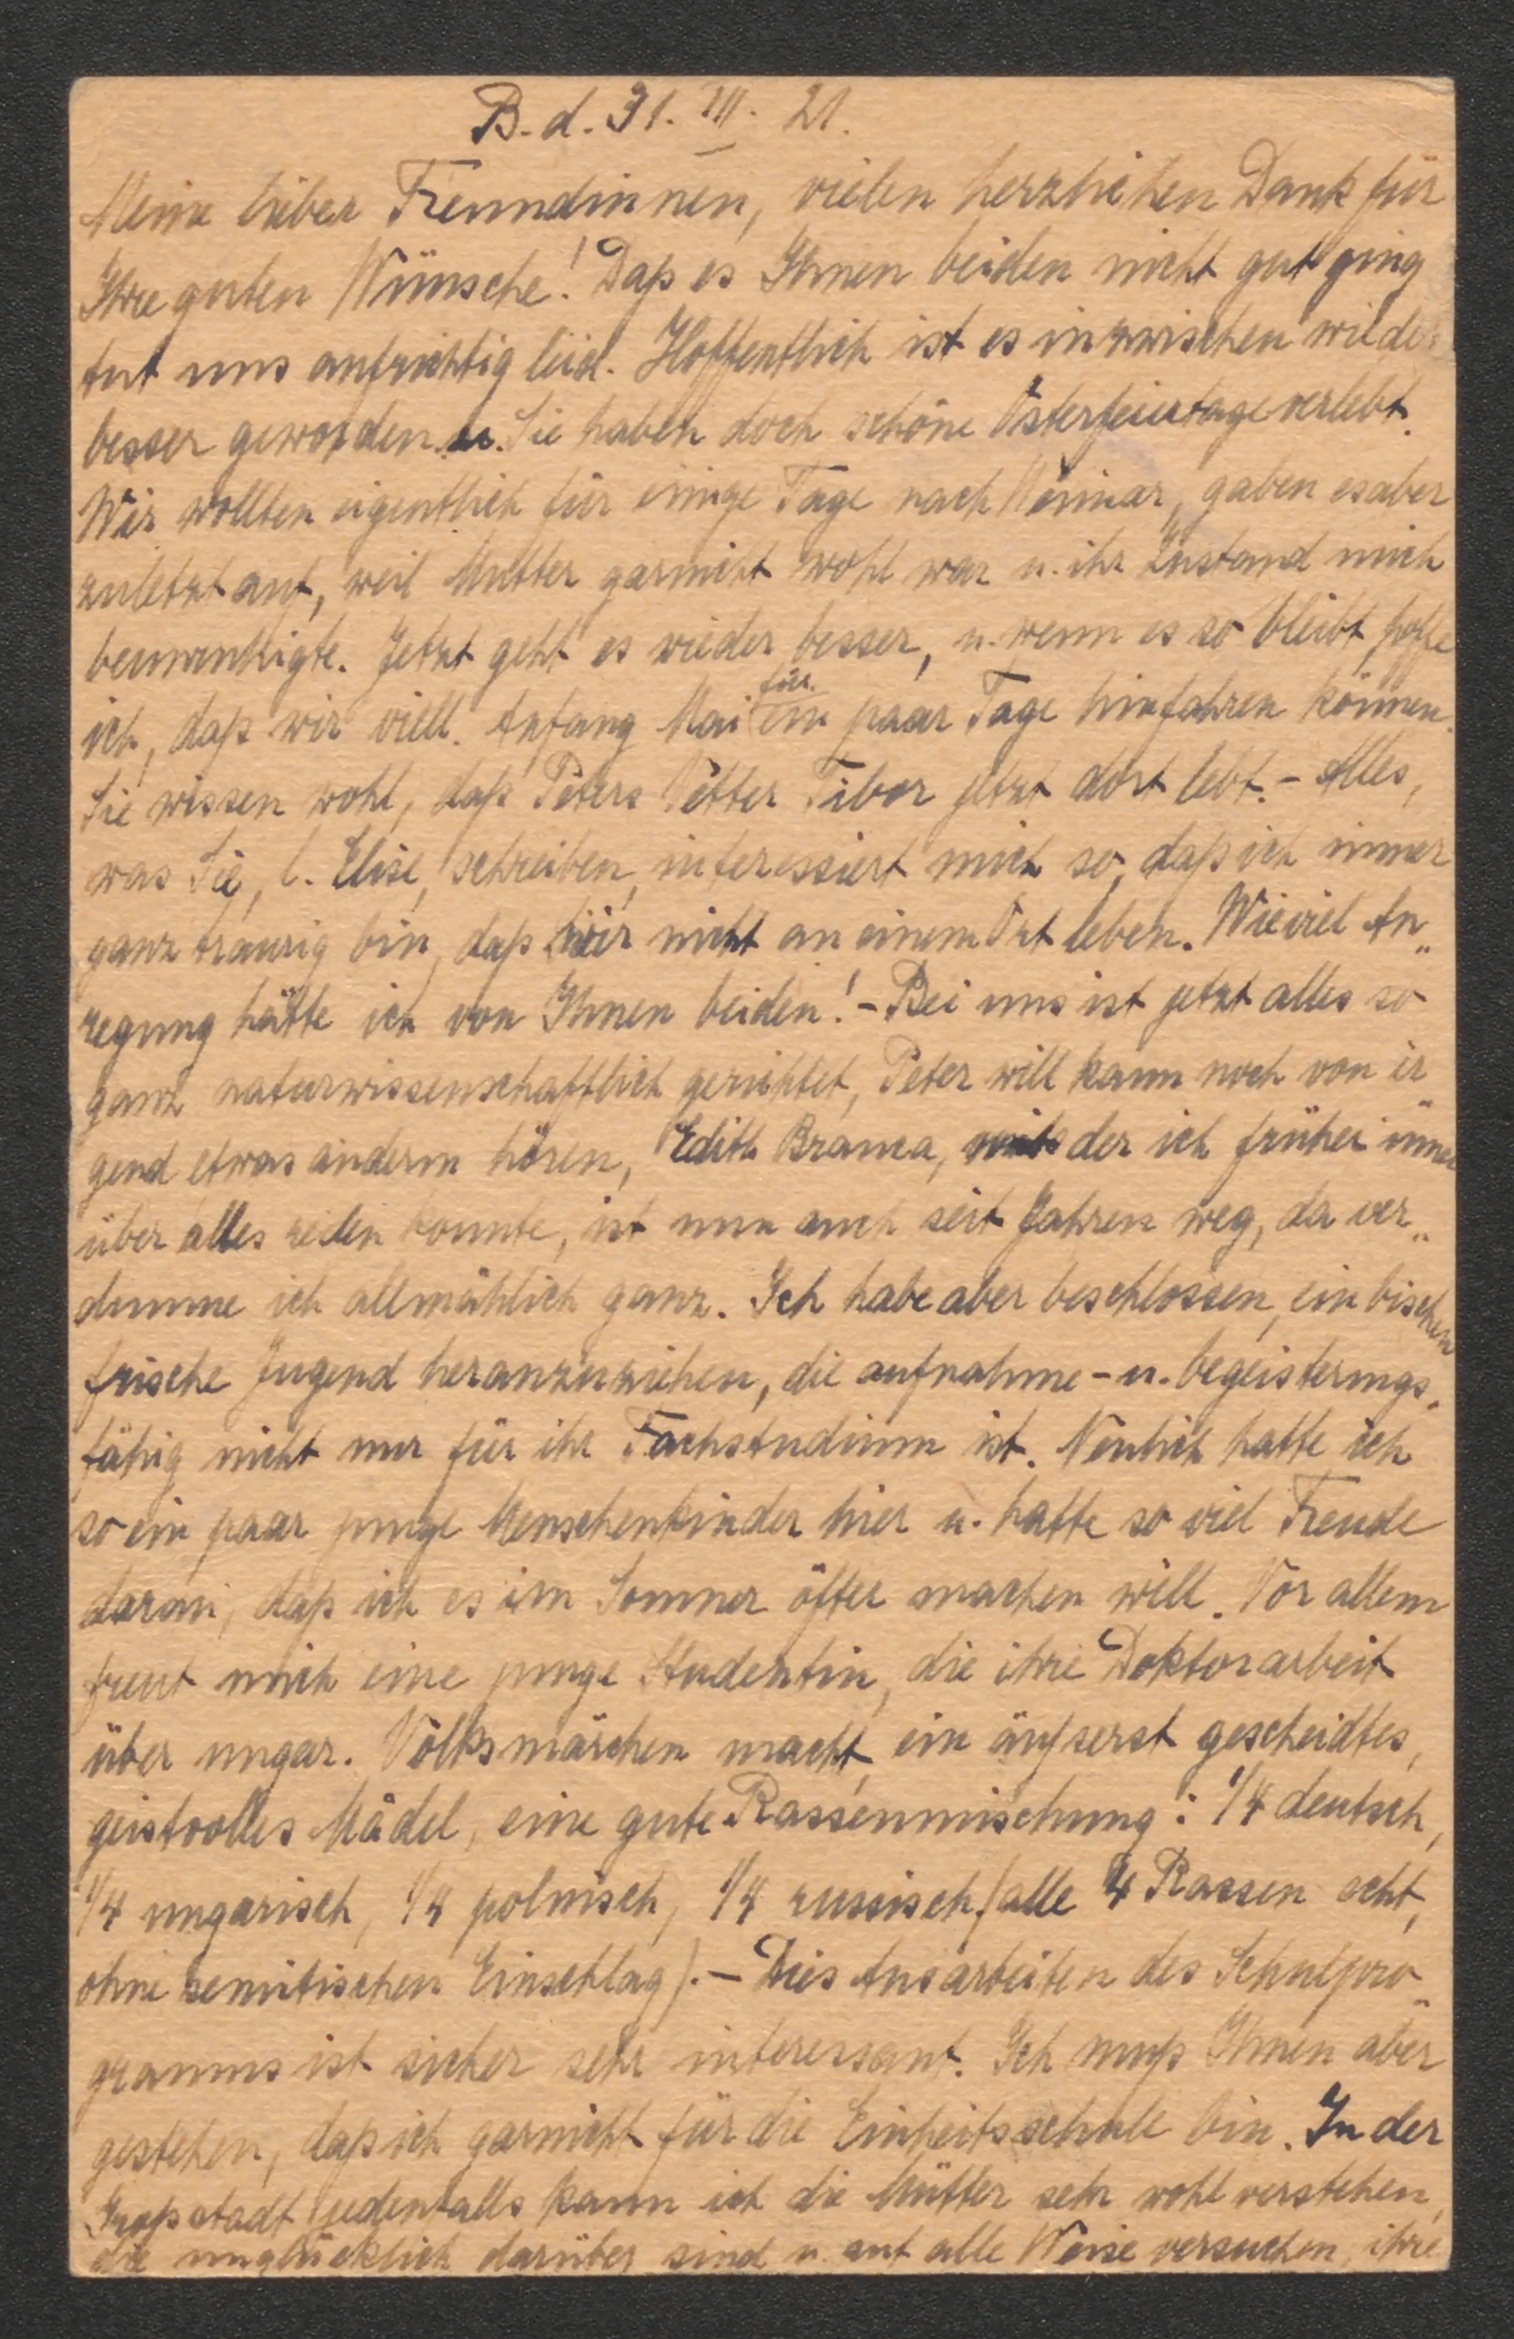 B. d. 31. III. 21.
Meine lieben Freundinnen, vielen herzlichen Dank für
Ihre guten Wünsche! Daß es Ihnen beiden nicht gut ging
tut uns aufrichtig leid. Hoffentlich ist es inzwischen wieder
besser geworden u. Sie haben doch schöne Osterfeiertage verlebt.
Wir wollten eigentlich für einige Tage nach Weimar, gaben es aber
zuletzt auf, weil Mutter garnicht wohl war u. ihr Zustand mich
beunruhigte. Jetzt geht es wieder besser, u. wenn es so bleibt, hoffe
ich, daß wir viell. Anfang Mai für ein paar Tage hinfahren können.
Sie wissen wohl, daß Peters Vetter Tibor jetzt dort lebt. - Alles,
was Sie, l. Elise, schreiben, interessiert mich so, daß ich immer
ganz traurig bin, daß wir nicht an einem Ort leben. Wieviel An„
regung hätte ich von Ihnen beiden! - Bei uns ist jetzt alles so
ganz naturwissenschaftlich gerichtet, Peter will kaum noch von ir„
gend etwas anderm hören, Edith Brama, mit der ich früher immer
über alles reden konnte, ist nun auch seit Jahren weg, da ver„
dumme ich allmählich ganz. Ich habe aber beschlossen, ein bischen
frische Jugend heranzuziehen, die aufnahme- u. begeisterungs„
fähig nicht nur für ihr Fachstudium ist. Neulich hatte ich
so ein paar junge Menschenkinder hier u. hatte so viel Freude
daran, daß ich es im Sommer öfter machen will. Vor allem
freut mich eine junge Studentin, die ihre Doktorarbeit
über ungar. Volksmärchen macht, ein äußerst gescheidtes,
geistvolles Mädel, eine gute Rassenmischung: 1/4 deutsch,
1/4 ungarisch, 1/4 polnisch, 1/4 russisch (alle 4 Rassen echt,
ohne semitischen Einschlag). - Dies Ausarbeiten des Schulpro„
gramms ist sicher sehr interessant. Ich muß Ihnen aber
gestehen, daß ich garnicht für die Einheitsschule bin. In der
Großstadt jedenfalls kann ich die Mütter sehr wohl verstehen,
die unglücklich darüber sind u. auf alle Weise versuchen, ihre